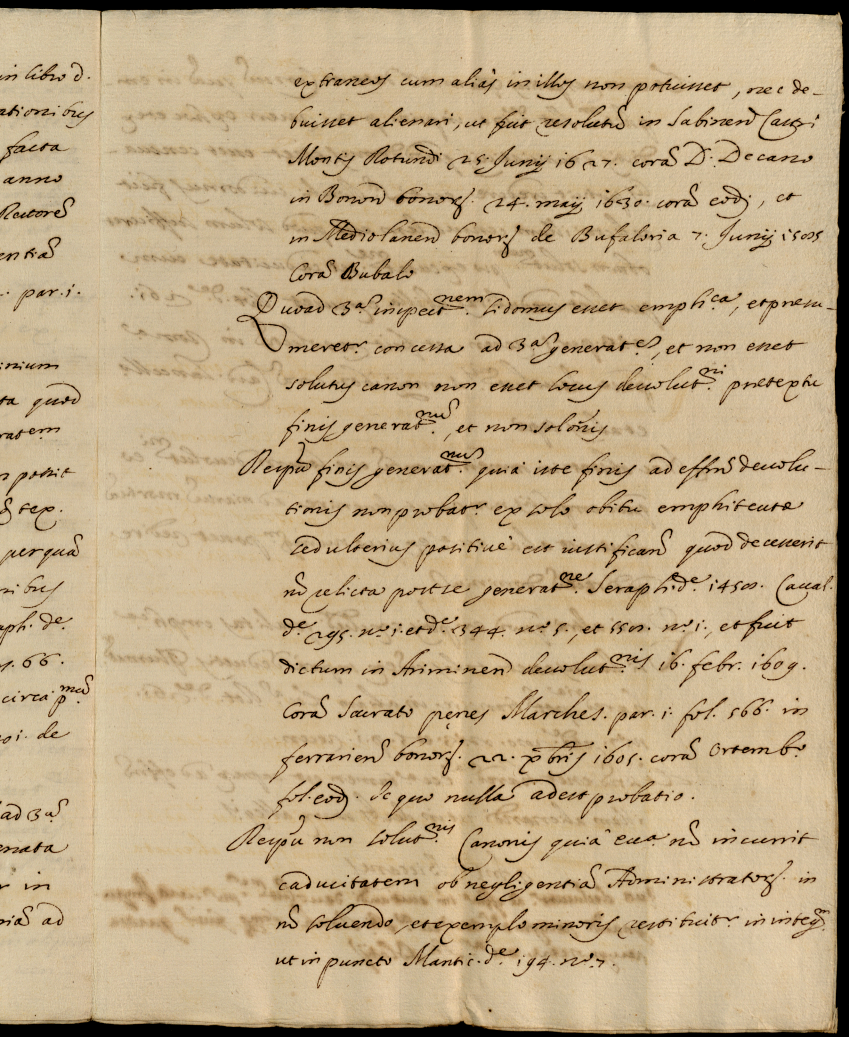 in libro d.
ationibus
facta
anno
Rectorē
entiā
par. 1.
inium
ta quod
ratem
n possit
tex.
per quā
nibus
aph. de.
66.
circa pmū
de
ad 3ā
nata
r in
riā ad
extraneos cum alias in illos non potuisset, nec de-
buisset alienari, ut fuit resolutū in Sabinen̄ Castri
Montis Rotundi 25. Junij 1627. corā D. Decano
in Bonon̄ bonorȝ. 24. maij 1630. corā eodȝ, et
in Mediolanen̄ bonorȝ de Bufaloria 7. Junij 1595
Corā Bubalo
Quoad 3ā inspectnem. Si domus esset emphca, et presu-
meretr. concessa ad 3ā generates, et non esset
solutus canon non esset locus devolutni. pretextu
finis generatnū., et non solōnis
Respū finis generatnū. quia iste finis ad effm̄ devolu-
tionis non probatr. ex solo obitu emphiteutæ
sed ulterius positivè est iustificand̄ quod decesserit
nō relicta post se generatne. Seraph. de. 1459. Caval.
de. 295. no. 1. et de. 344. no. 5., et 559. no. 1., et fuit
dictum in Ariminen̄ devolutnis 16. febr. 1609.
Corā Sacrato penes Marches. par. 1. fol. 566. in
ferrarien̄ bonorȝ. 22. xbris 1605. corā Ortembo.
fol. eodȝ. de quo nulla adest probatio.
Respū non solutnis Canonis quia ecca. nō incurrit
caducitatem ob negligentiā Administratorȝ. in
nō solvendo, et exemplo minoris restituitr. in integȝ
ut in puncto Mantic. de. 194. no. 7.